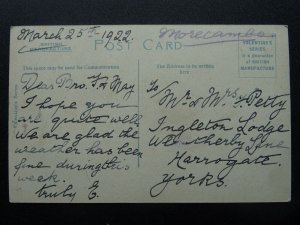 March 25th 1922.
POST CARD
Morecambe
VALENTINE'S
SERIES
is a guarantee
of BRITISH
MANUFACTURE
BRITISH
MANUFACTURE
This space may be used for Communication
The Address to be written
here
Dear F. & May
I hope you
are quite well
We are glad the
weather has been
fine during this
week.
truly E.
To
Mr. & Mrs. F. Petty
Ingleton Lodge
Wetherby Lane
Harrogate.
Yorks.